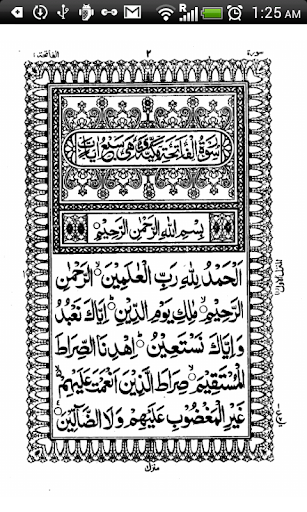 1:25 AM
سورة ٢ الفاتحة
سورة الفاتحة مكية وهى سبع ايات
بِسْمِ اللهِ الرَّحْمٰنِ الرَّحِيْمِ
اَلْحَمْدُ لِلّٰهِ رَبِّ الْعٰلَمِيْنَ ۙ الرَّحْمٰنِ
الرَّحِيْمِ ۙ مٰلِكِ يَوْمِ الدِّيْنِ ؕ اِيَّاكَ نَعْبُدُ
وَاِيَّاكَ نَسْتَعِيْنُ ؕ اِهْدِنَا الصِّرَاطَ
الْمُسْتَقِيْمَ ۙ صِرَاطَ الَّذِيْنَ اَنْعَمْتَ عَلَيْهِمْ ۙ
غَيْرِ الْمَغْضُوْبِ عَلَيْهِمْ وَلَا الضَّآلِّيْنَ
منزل